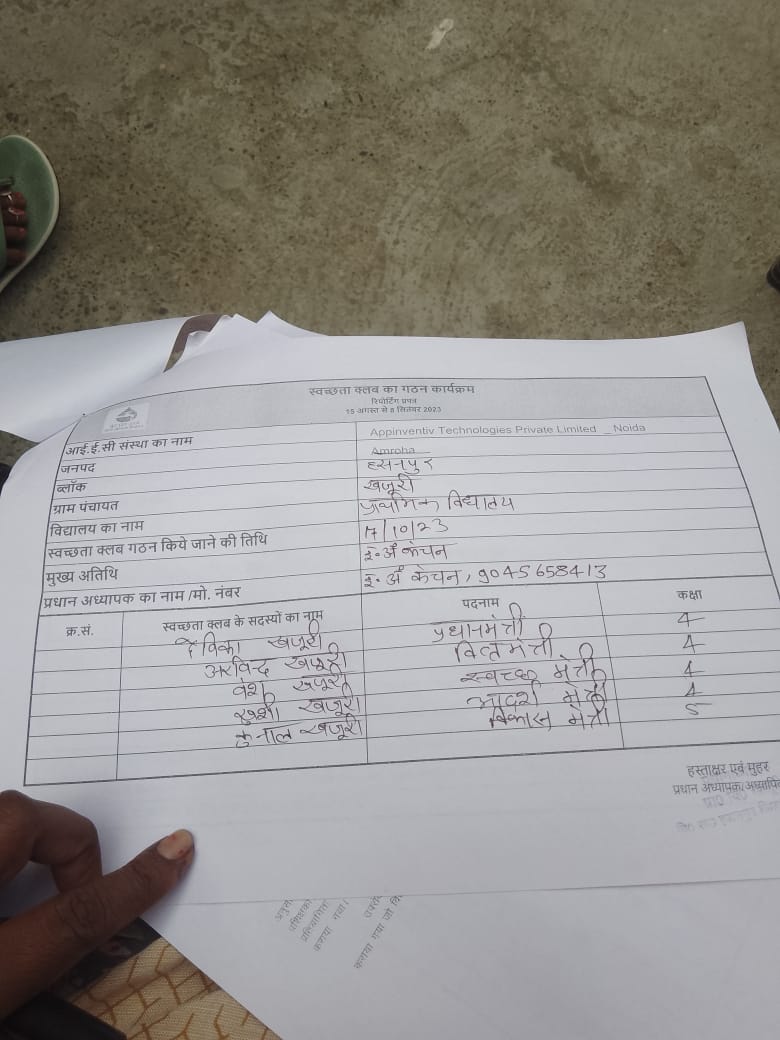 स्वच्छता क्लब का गठन कार्यक्रम
रिपोर्टिंग प्रपत्र
15 अगस्त से 8 सितंबर 2023
आई.ई.सी संस्था का नाम Appinventiv Technologies Private Limited _Noida
जनपद Amroha
ब्लॉक हसनपुर
ग्राम पंचायत खजूरी
विद्यालय का नाम प्राथमिक विद्यालय
स्वच्छता क्लब गठन किये जाने की तिथि 17/10/23
मुख्य अतिथि इ०अ कंचन
प्रधान अध्यापक का नाम /मो. नंबर इ०अ कंचन, 9045658413
क्र.सं. स्वच्छता क्लब के सदस्यों का नाम पदनाम कक्षा
देविका खजूरी प्रधानमंत्री 4
अरविन्द खजूरी वित्त मंत्री 4
वंश खजूरी स्वच्छ मंत्री 4
खुशी खजूरी आदर्श मंत्री 4
कुनाल खजूरी विकास मंत्री 5
हस्ताक्षर एवं मुहर
प्रधान अध्यापक/अध्यापि
कराया गया।
कराया गया जो कि